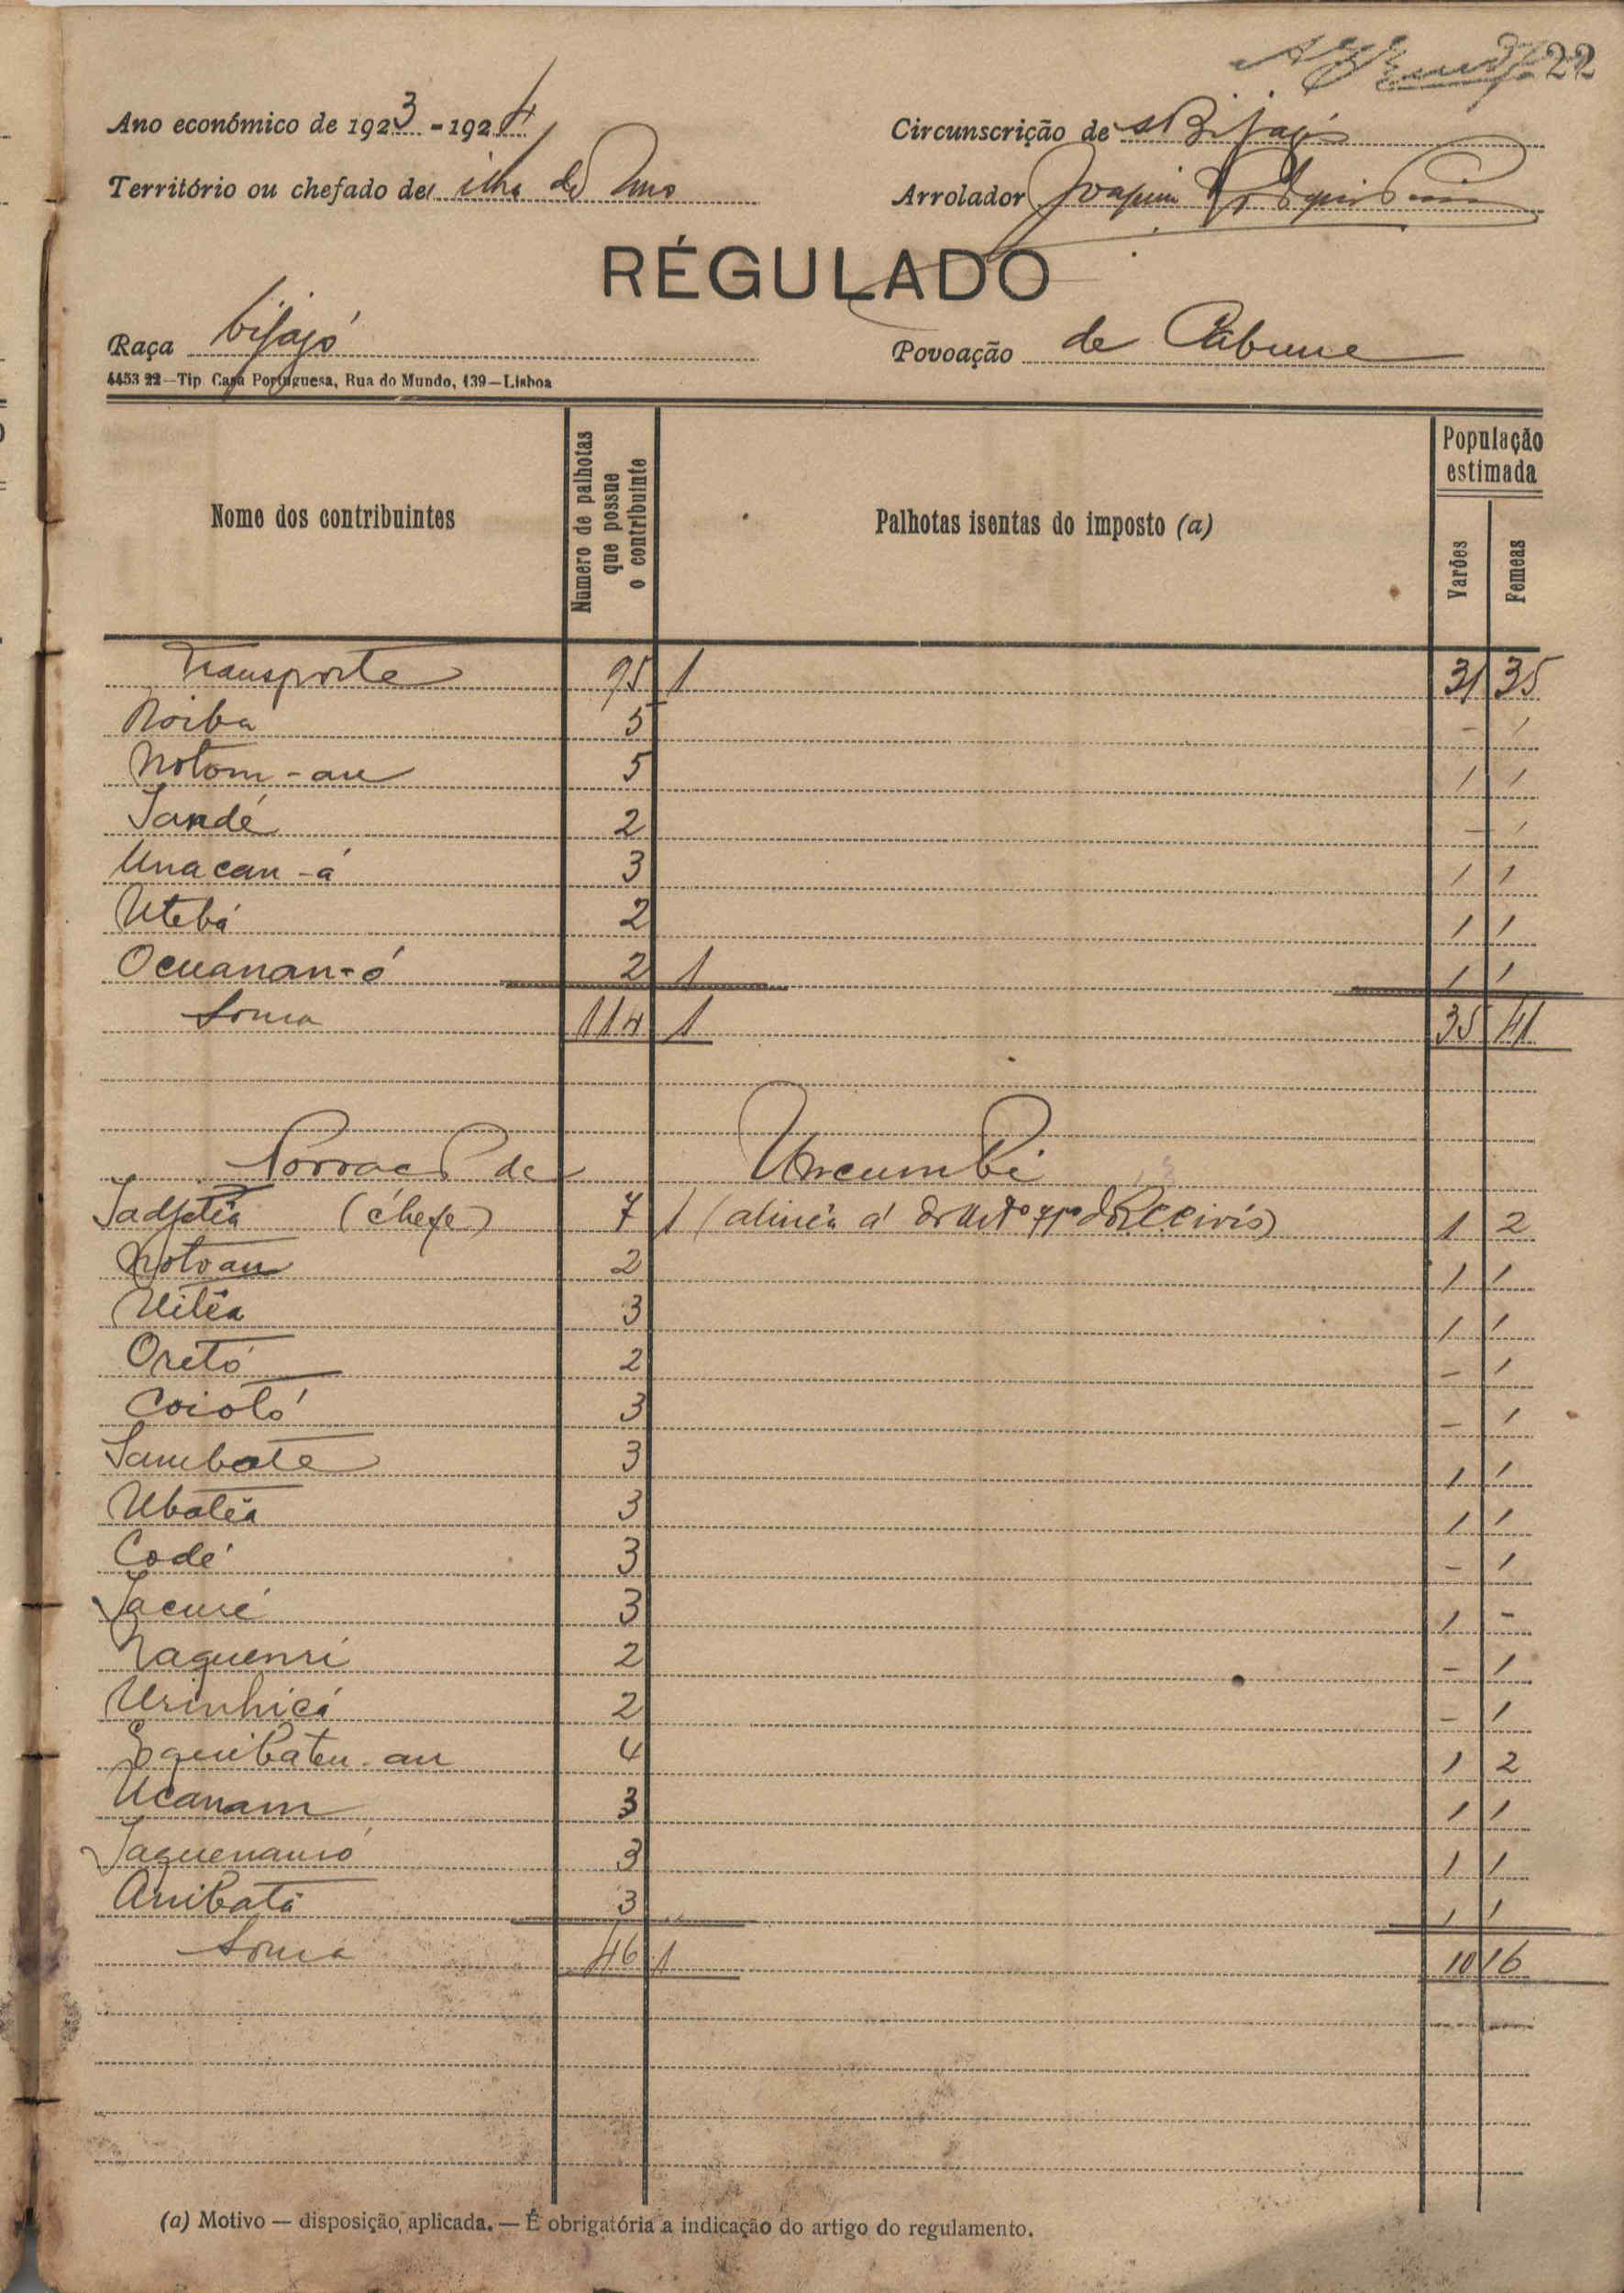 22
Ano económico de 1923 - 1924
Circunscrição de Bijagós
Território ou chefado de ilha de Uno
Arrolador Joaquim
RÉGULADO
Raça bijagó
Povoação de Cabune
4453 22—Tip Casa Portuguesa, Rua do Mundo, 139—Lisboa
Nome dos contribuintes
Numero de palhotas que possue o contribuinte
Palhotas isentas do imposto (a)
População estimada
Varões
Femeas
Transporte 95 1 31 35
Noiba 5 - 1
Notom-au 5 1 1
Jandé 2 - 1
Unacan-á 3 1 1
Utebá 2 1 1
Ocuanan-ó 2 1 1 1
Soma 114 1 35 41
de Uncumbi
(chefe) 7 1 (alinea á do civis) 1 2
Notoau 2 1 1
3 1 1
Oretó 2 - 1
Coiotó 3 - 1
Sambate 3 1 1
Ubotéa 3 1 1
Codé 3 - 1
Jacuré 3 1 -
Naquenri 2 - 1
Urinhicá 2 - 1
4 1 2
Ucanam 3 1 1
Jaquenanió 3 1 1
Anibatá 3 1 1
Soma 46 1 10 16
(a) Motivo — disposição aplicada. — É obrigatória a indicação do artigo do regulamento.